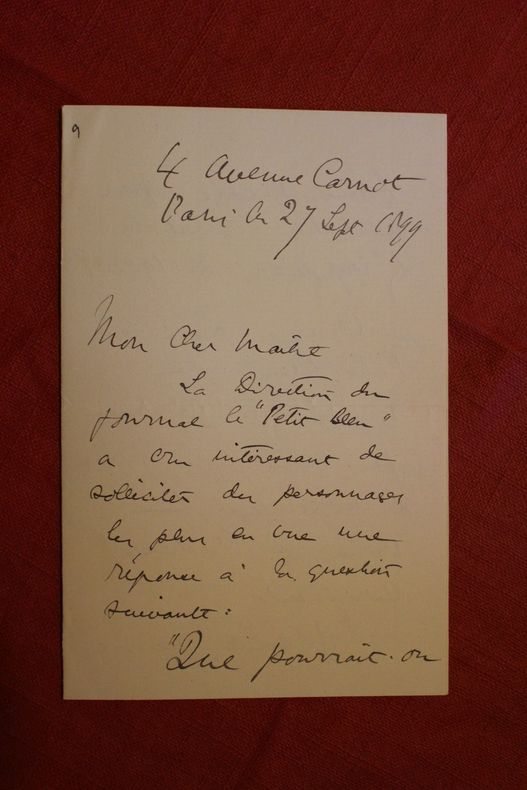 9
4 Avenue Carnot
Paris le 27 Sept 1899
Mon Cher Maître
La Direction du
journal le "Petit Bleu"
a cru intéressant de
solliciter des personnages
les plus en vue une
réponse à la question
suivante :
"Que pourrait-on